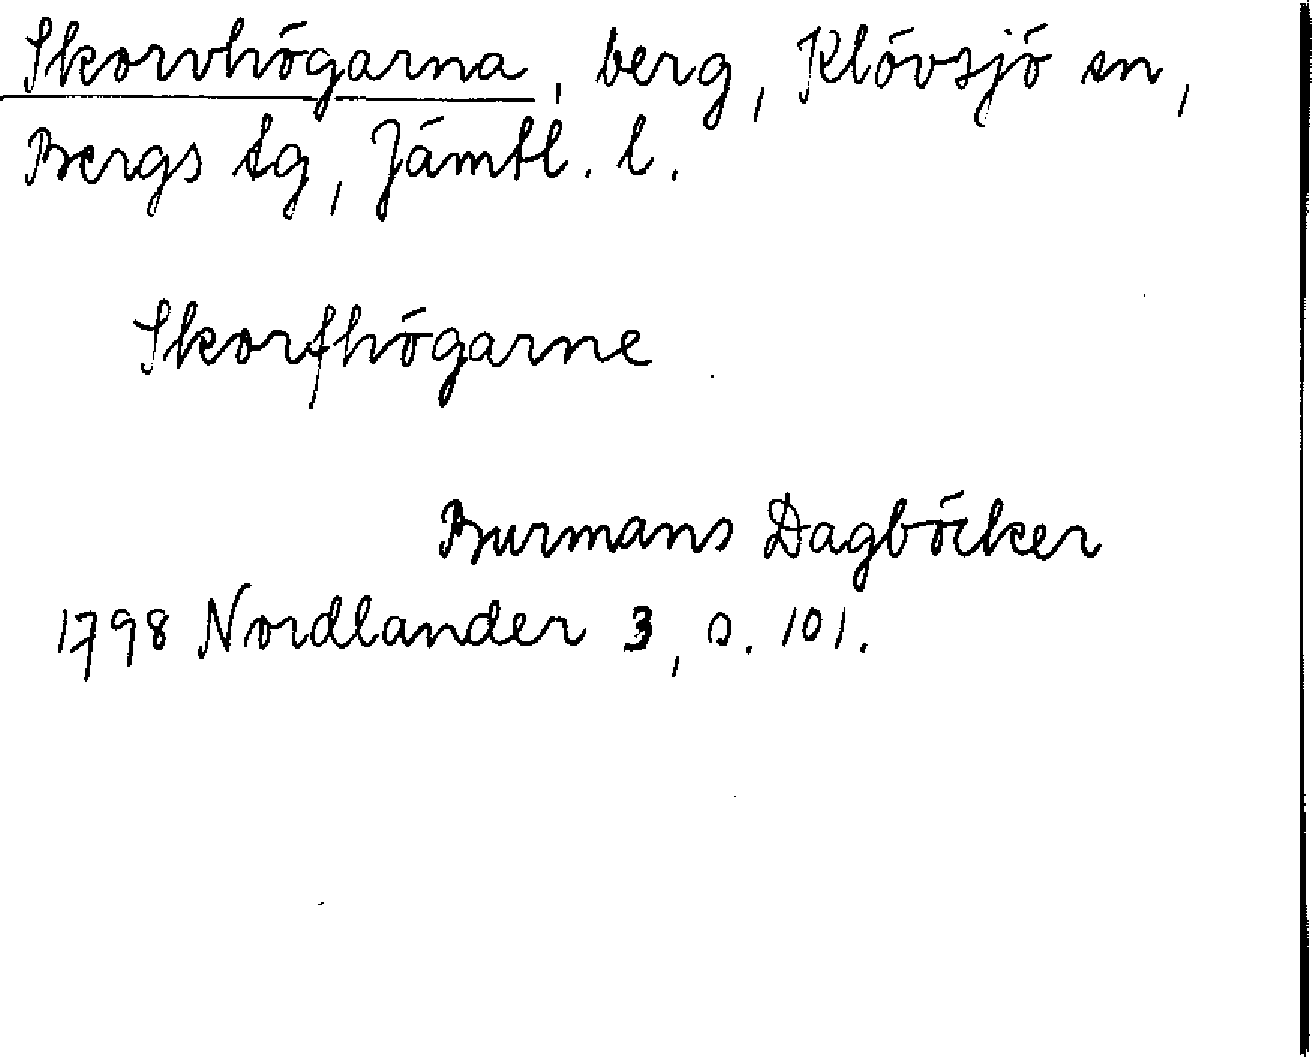 Skorvhögarna, berg, Klövsjö sn,
Bergs tg, Jämtl. l.
Skorfhögarne
Burmans Dagböcker
1798 Nordlander 3, s. 101.